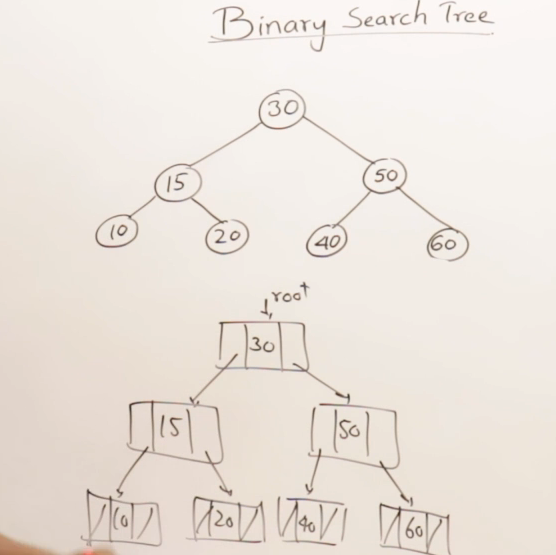 Binary Search Tree
30
15 50
10 20 40 60
root
30
15 50
10 20 40 60